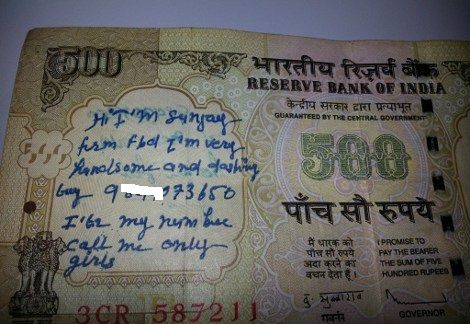 500
Hi I'M Sunjay
firm Fbd I'm very
Handsome and dashing
Guy 973650
my
call me only
girls
3CR 587211
भारतीय रिज़र्व बैंक
RESERVE BANK OF INDIA
केन्द्रीय सरकार द्वारा प्रत्याभूत
GUARANTEED BY THE CENTRAL GOVERNMENT
500
पाँच सौ रुपये
मैं धारक को
पाँच सौ रुपये
अदा करने का
वचन देता हूँ ।
I PROMISE TO
PAY THE BEARER
THE SUM OF FIVE
HUNDRED RUPEES
दु. सुब्बाराव
गवर्नर
GOVERNOR